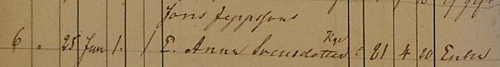 Jons Jeppsons
6 " 25 Jan 1. / E. Anna Svensdotter : 21 4 20 Enka